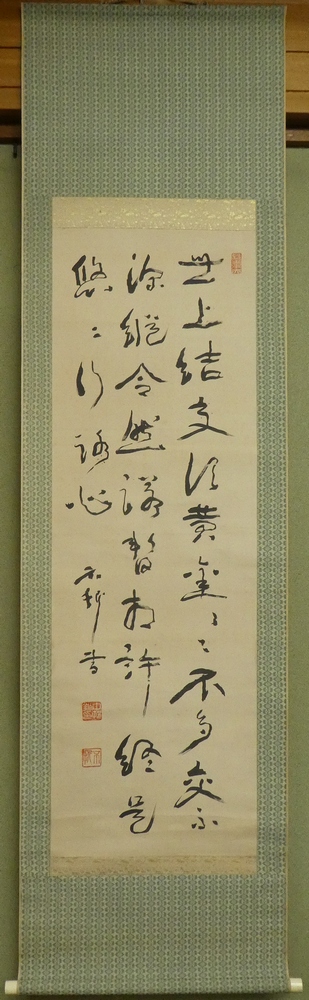 世上結交須黄金〻〻不多交不
深縱令然諾暫相許終是
悠〻行路心
書